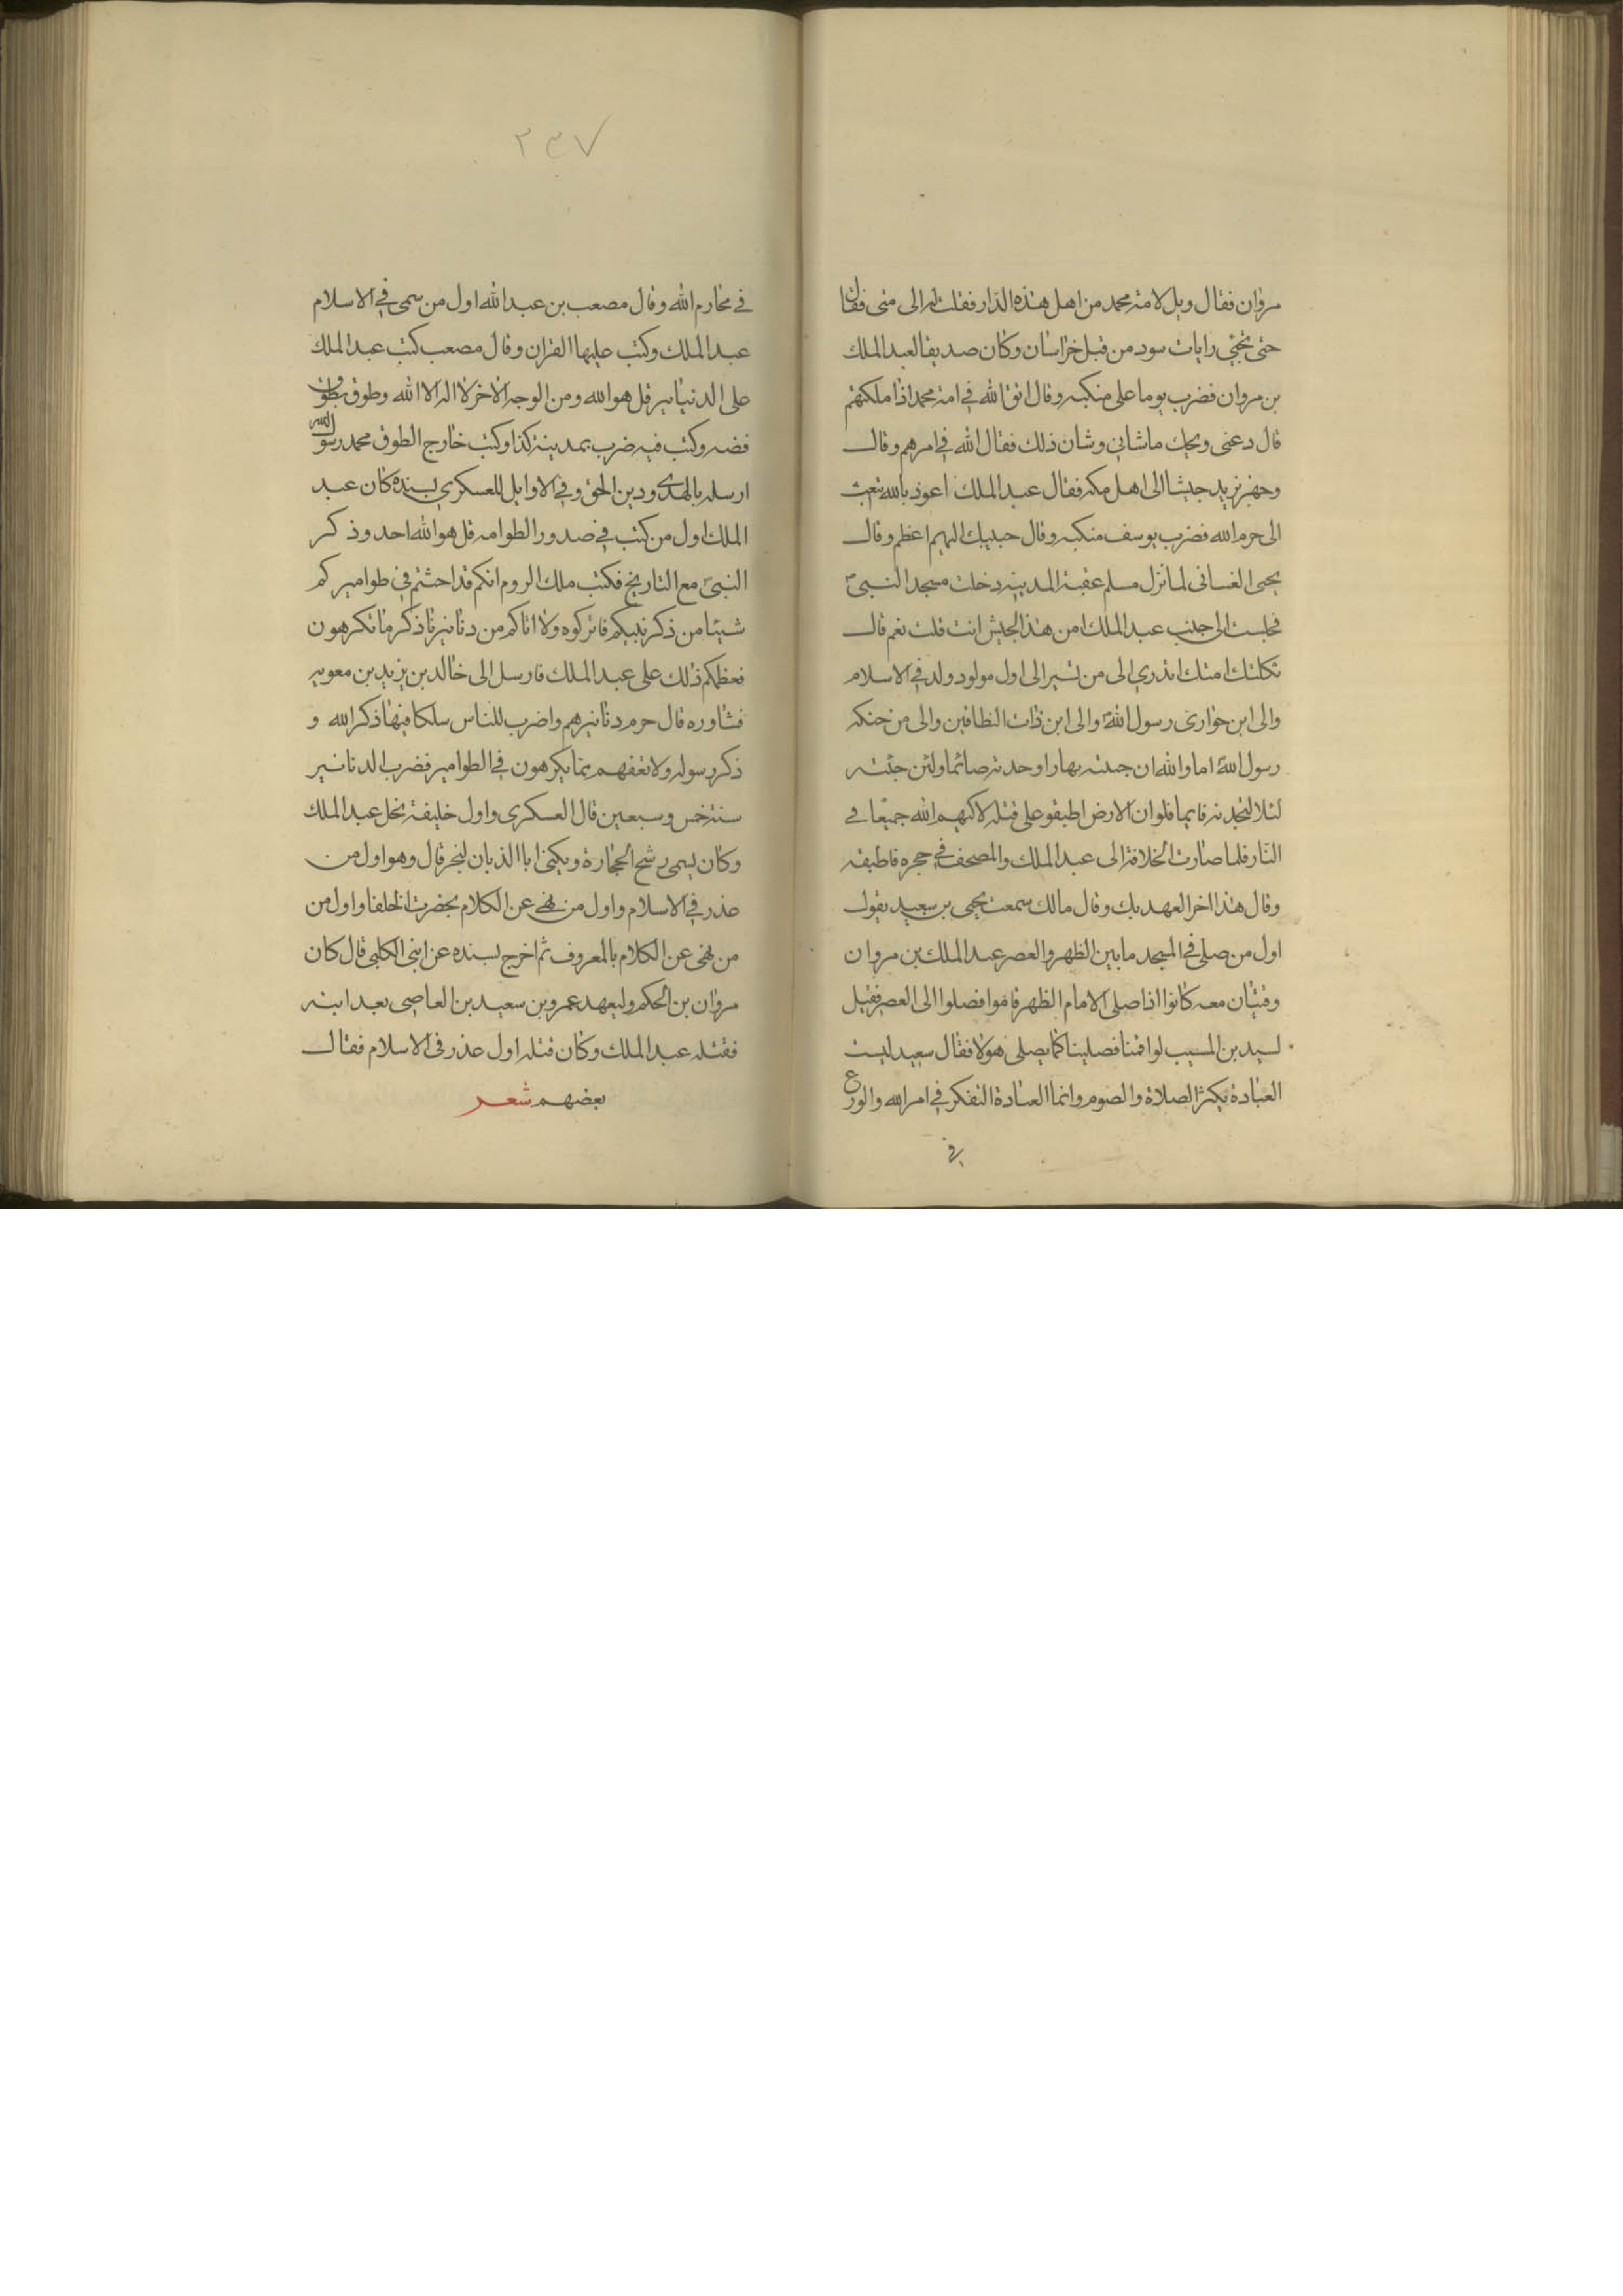 مروان فقال ويل لامة محمد من اهل هذه الدار فقلت له الى متى فقال
حتى تجئ رايات سود من قبل خراسان وكان صديقا لعبد الملك
بن مروان فضرب يوما على منكبه وقال اتق الله في امة محمد اذا ملكتهم
قال دعنى ويحك ماشاني وشان ذلك فقال الله في امرهم وقال
وجهز يزيد جيشا الى اهل مكة فقال عبد الملك اعوذ بالله تبعث
الى حرم الله فضرب يوسف منكبه وقال جيشك اليهم اعظم وقال
يحيى الغسانى لما نزل مسلم عقبة المدينة دخلت مسجد النبى
فجلست الى جنب عبد الملك امن هذا الجيش انت قلت نعم قال
ثكلتك امك اتدري الى من تسير الى اول مولود ولد في الاسلام
والى ابن حوارى رسول الله والى ابن ذات النطاقين والى من حنكه
رسول الله اما والله ان جئته نهارا وجدته صائما ولئن جئته
لئلا لتجدنه قايما فلو ان الارض اطبقو على قتله لاكبهم الله جميعا في
النار فلما صارت الخلافة الى عبد الملك والمصحف في حجره فاطبقه
وقال هذا اخر العهد بك وقال مالك سمعت يحيى بن سعيد يقول
اول من صلى في المسجد مابين الظهر والعصر عبد الملك بن مروان
وفتيان معه كانوا اذا صلى الامام الظهر قاموا فصلوا الى العصر فقيل
لسيد بن المسيب لو اقمنا فصلينا كما يصلى هولا فقال سعيد ليست
العبادة بكثر الصلاة والصوم وانما العبادة التفكر في امر الله والورع
في
٢٣٧
في محارم الله وقال مصعب بن عبد الله اول من سمى في الاسلام
عبد الملك وكتب عليها القران وقال مصعب كتب عبد الملك
على الدنانير قل هو الله ومن الوجه الاخر لا اله الا الله وطوق بطوق
فضه وكتب فيه ضرب بمدينة كذا وكتب خارج الطوق محمد رسول الله
ارسله بالهدى ودين الحق وفي الاوايل للعسكري بسنده كان عبد
الملك اول من كتب في صدور الطوامه قل هو الله احد وذكر
النبى مع التاريخ فكتب ملك الروم انكم قد احدثتم في طواميركم
شيئا من ذكر نبيكم فاتركوه ولا اتاكم من دنانيرنا ذكر ما تكرهون
فعظم ذلك على عبد الملك فارسل الى خالد بن يزيد بن معويه
فشاوره قال حرم دنانيرهم واضرب للناس سلكا فيها ذكر الله و
ذكر رسوله ولا تعفهم مما يكرهون في الطوامير فضرب الدنانير
سنة خمس وسبعين قال العسكرى واول خليفة بخل عبد الملك
وكان يسمى رشح الحجارة ويكنى ابا الذبان لبخره قال وهو اول من
غدر في الاسلام واول من نهى عن الكلام بحضرت الخلفا واول من
من نهى عن الكلام بالمعروف ثم اخرج بسنده عن ابنى الكلبى قال كان
مروان بن الحكم وليعهد عمرو بن سعيد بن العاصى بعد ابنه
فقتله عبد الملك وكان قتله اول غدر في الاسلام فقال
بعضهم شعر